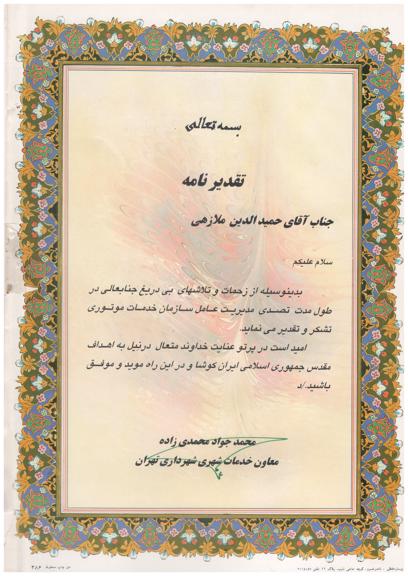 بسمه تعالی
تقدیر نامه
جناب آقای حمید الدین ملازهی
سلام علیکم
بدینوسیله از زحمات و تلاشهای بی دریغ جنابعالی در
طول مدت تصدی مدیریت عامل سازمان خدمات موتوری
تشکر و تقدیر می نماید.
امید است در پرتو عنایت خداوند متعال درنیل به اهداف
مقدس جمهوری اسلامی ایران کوشا و در این راه موید و موفق
باشید./د
محمد جواد محمدی زاده
معاون خدمات شهری شهرداری تهران